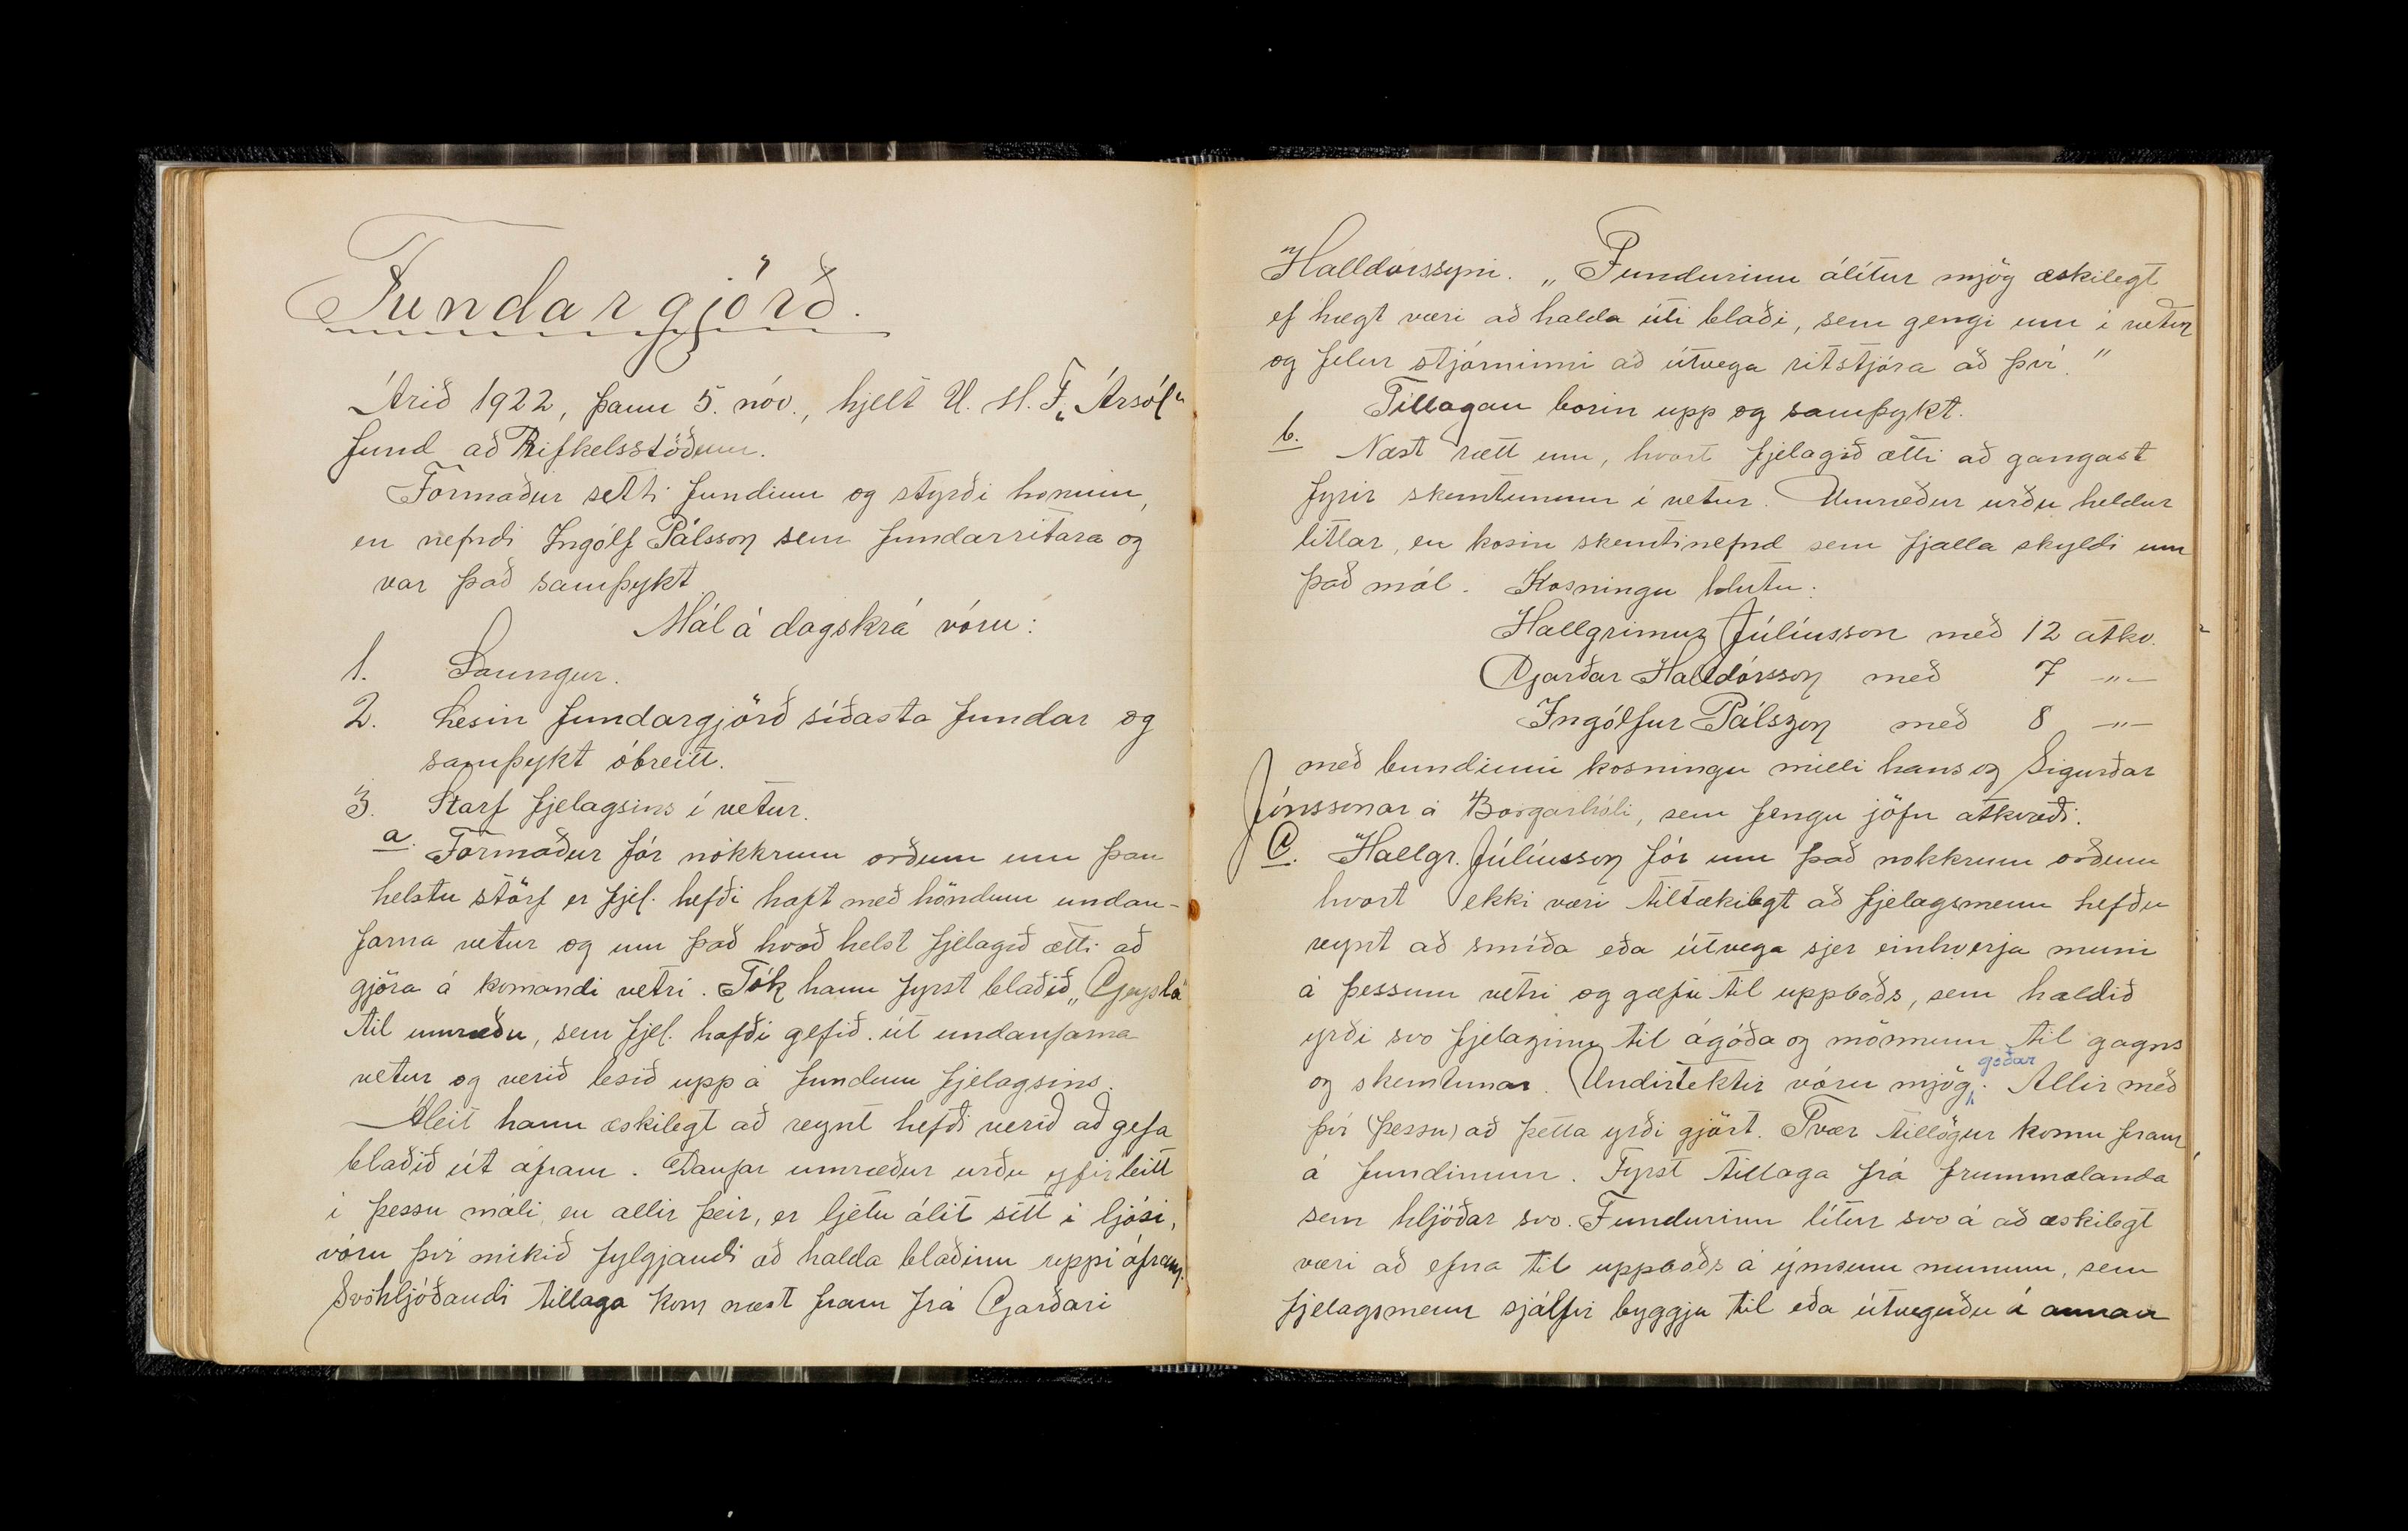 Fundargjörð.
Árið 1922, þann 5. nóv., hjelt U. M. F. „Ársól“
fund að Rifkelsstöðum.
Formaður setti fundinn og stýrði honum,
en nefndi Ingólf Pálsson sem fundarritara og
var það samþykt.
Mál á dagskrá vóru:
1. Saungur.
2. Lesin fundargjörð síðasta fundar og
samþykt óbreitt.
3. Starf fjelagsins í vetur.
a. Formaður fór nokkrum orðum um þau
helstu störf er fjel. hefði haft með höndum undan-
farna vetur og um það hvað helst fjelagið ætti að
gjöra á komandi vetri. Tók hann fyrst blaðið „Geysla“
til umræðu, sem fjel. hafði gefið út undanfarna
vetur og verið lesið upp á fundum fjelagsins.
Áleit hann æskilegt að reynt hefði verið að gefa
blaðið út áfram. Daufar umræður urðu yfirleitt
í þessu máli, en allir þeir, er ljetu álit sitt í ljósi,
vóru því mikið fylgjandi að halda blaðinu uppi áfram.
Svohljóðandi tillaga kom næst fram frá Garðari
Halldórssyni. „Fundurinn álítur mjög æskilegt
ef hægt væri að halda úti blaði, sem gengi um í vetur
og felur stjórninni að útvega ritstjóra að því.“
Tillagan borin upp og samþykt.
b. Næst rætt um, hvort fjelagið ætti að gangast
fyrir skemtunum í vetur. Umræður urðu heldur
litlar, en kosin skemtinefnd sem fjalla skyldi um
það mál. Kosningu hlutu:
Hallgrimur Júlíusson með 12 atkv.
Garðar Halldórsson með 7 —〃—
Ingólfur Pálsson með 8 —〃—
með bundinni kosningu milli hans og Sigurðar
Jónssonar á Borgarhóli, sem fengu jöfn atkvæði.
C. Hallgr. Júlíusson fór um það nokkrum orðum
hvort ekki væri tiltækilegt að fjelagsmenn hefðu
reynt að smíða eða útvega sjer einhverja muni
á þessum vetri og gæfu til uppboðs, sem haldið
yrði svo fjelaginu til ágóða og mönnum til gagns
og skemtunar. Undirtektir vóru mjög góðar. Allir með
því (þessu) að þetta yrði gjört. Tvær tillögur komu fram
á fundinum. Fyrst tillaga frá frummælanda
sem hljóðar svo. Fundurinn lítur svo á að æskilegt
væri að efna til uppboðs á ýmsum munum, sem
fjelagsmenn sjálfir byggju til eða útveguðu á annan